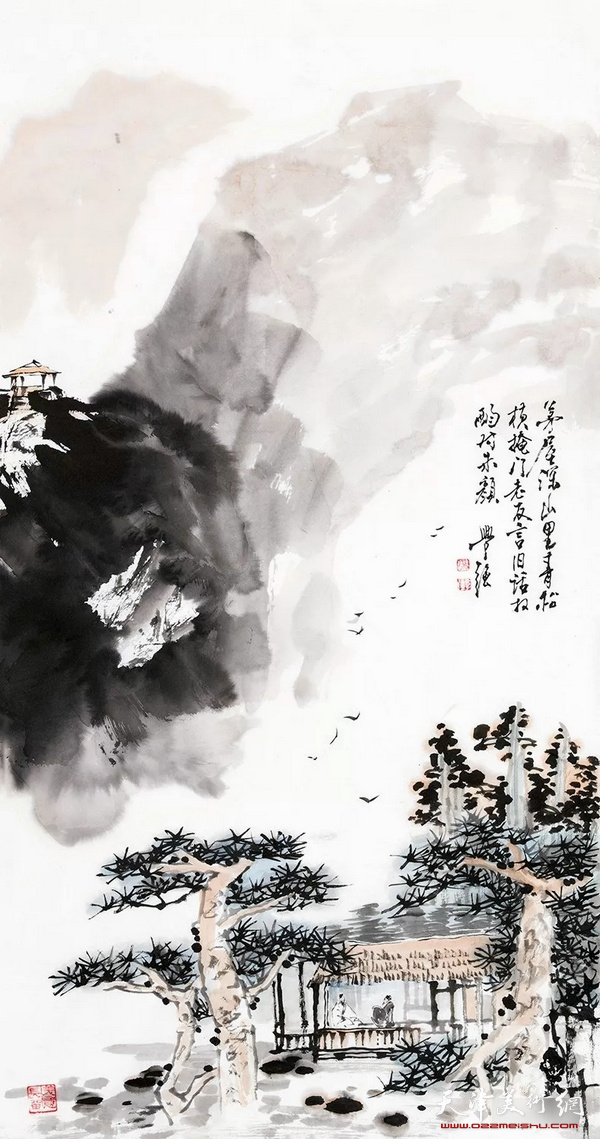 茅屋深山里青松
横掩门老友言旧话
酌对朱颜
學强
天津美术網
www.022meishu.com